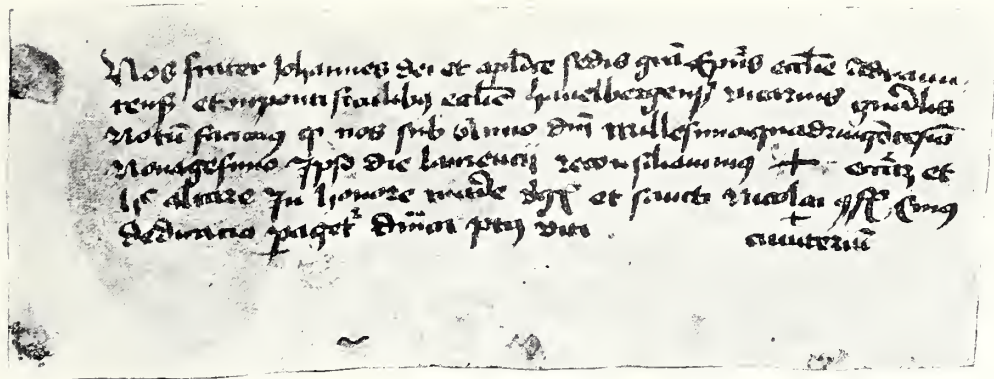 Nos frater Johannes dei et aplice sedis gra Epus ecclie
et in pontificalibus ecclie havelbergens vicarius gnalis
Notu facimus q nos sub Anno dni Millesimoquadringetesio
Nonagesimo Ipso die laurencii reconsiliavimus + eccliaz et
h altare In honore marie vgis et sancti Nicolai gf Cuius
dedicacio dnica post viti
+ cimiteriu